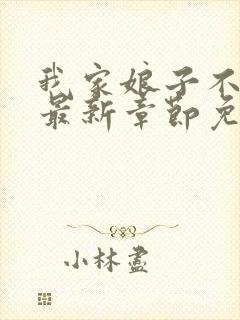 我家娘子不
最新章节免
小林盏